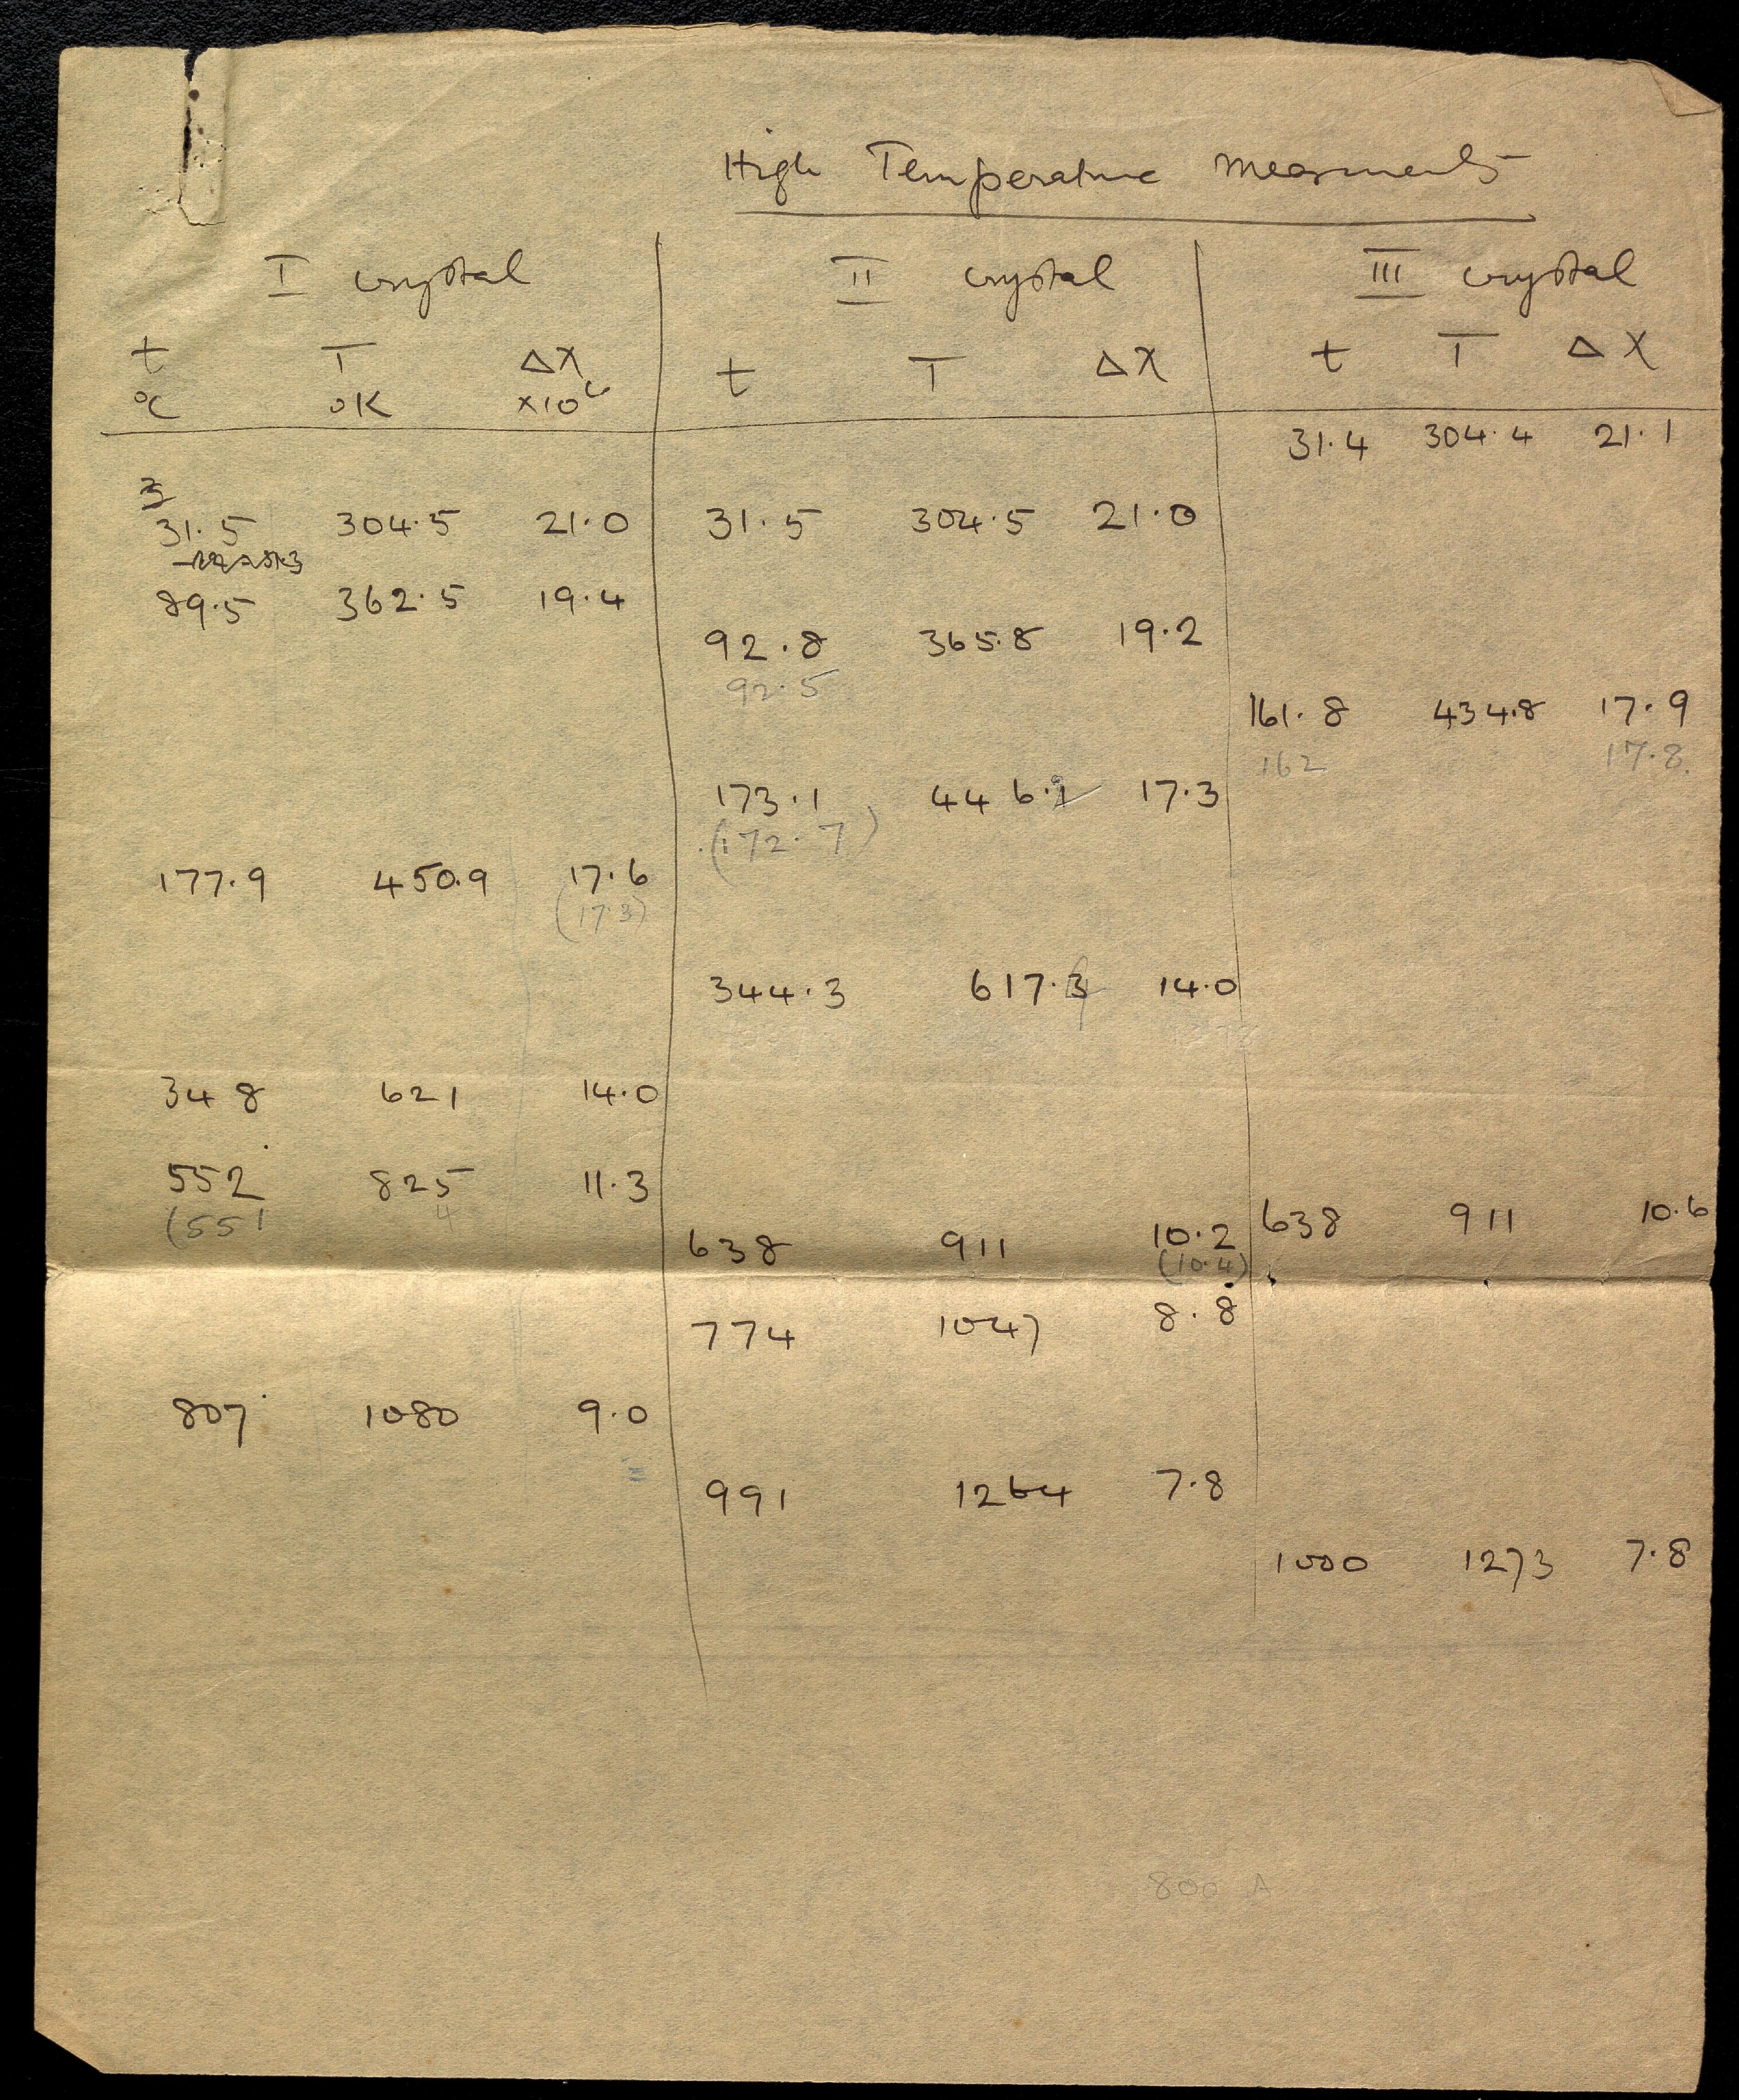 High Temperature Measurements
I crystal II crystal III crystal
t T ΔX t T ΔX t T ΔX
°C °K ×10⁶
31.4 304.4 21.1
3
31.5 304.5 21.0 31.5 304.5 21.0
89.5 362.5 19.4
92.8 365.8 19.2
92.5
161.8 434.8 17.9
162 17.8
173.1 446.1 17.3
(172.7)
177.9 450.9 17.6
(17.3)
344.3 617.3 14.0
348 621 14.0
552 825 11.3
(551 4
638 911 10.2 638 911 10.6
(10.4)
774 1047 8.8
807 1080 9.0
991 1264 7.8
1000 1273 7.8
800 A